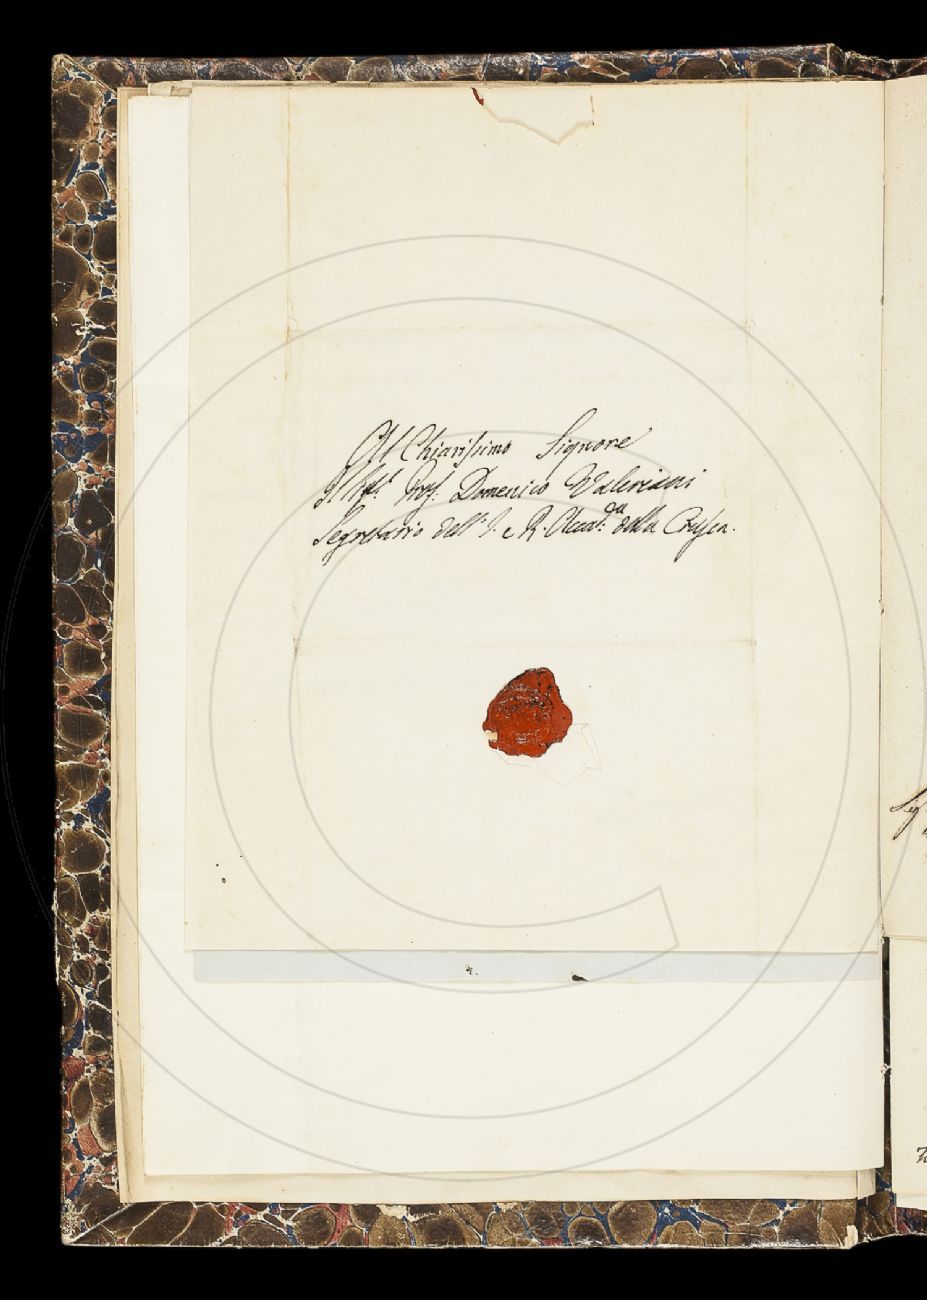 Al Chiarissimo Signore
Il Sig.r Prof. Domenico Valeriani
Segretario dell'I. e R. Accad.a della Crusca.